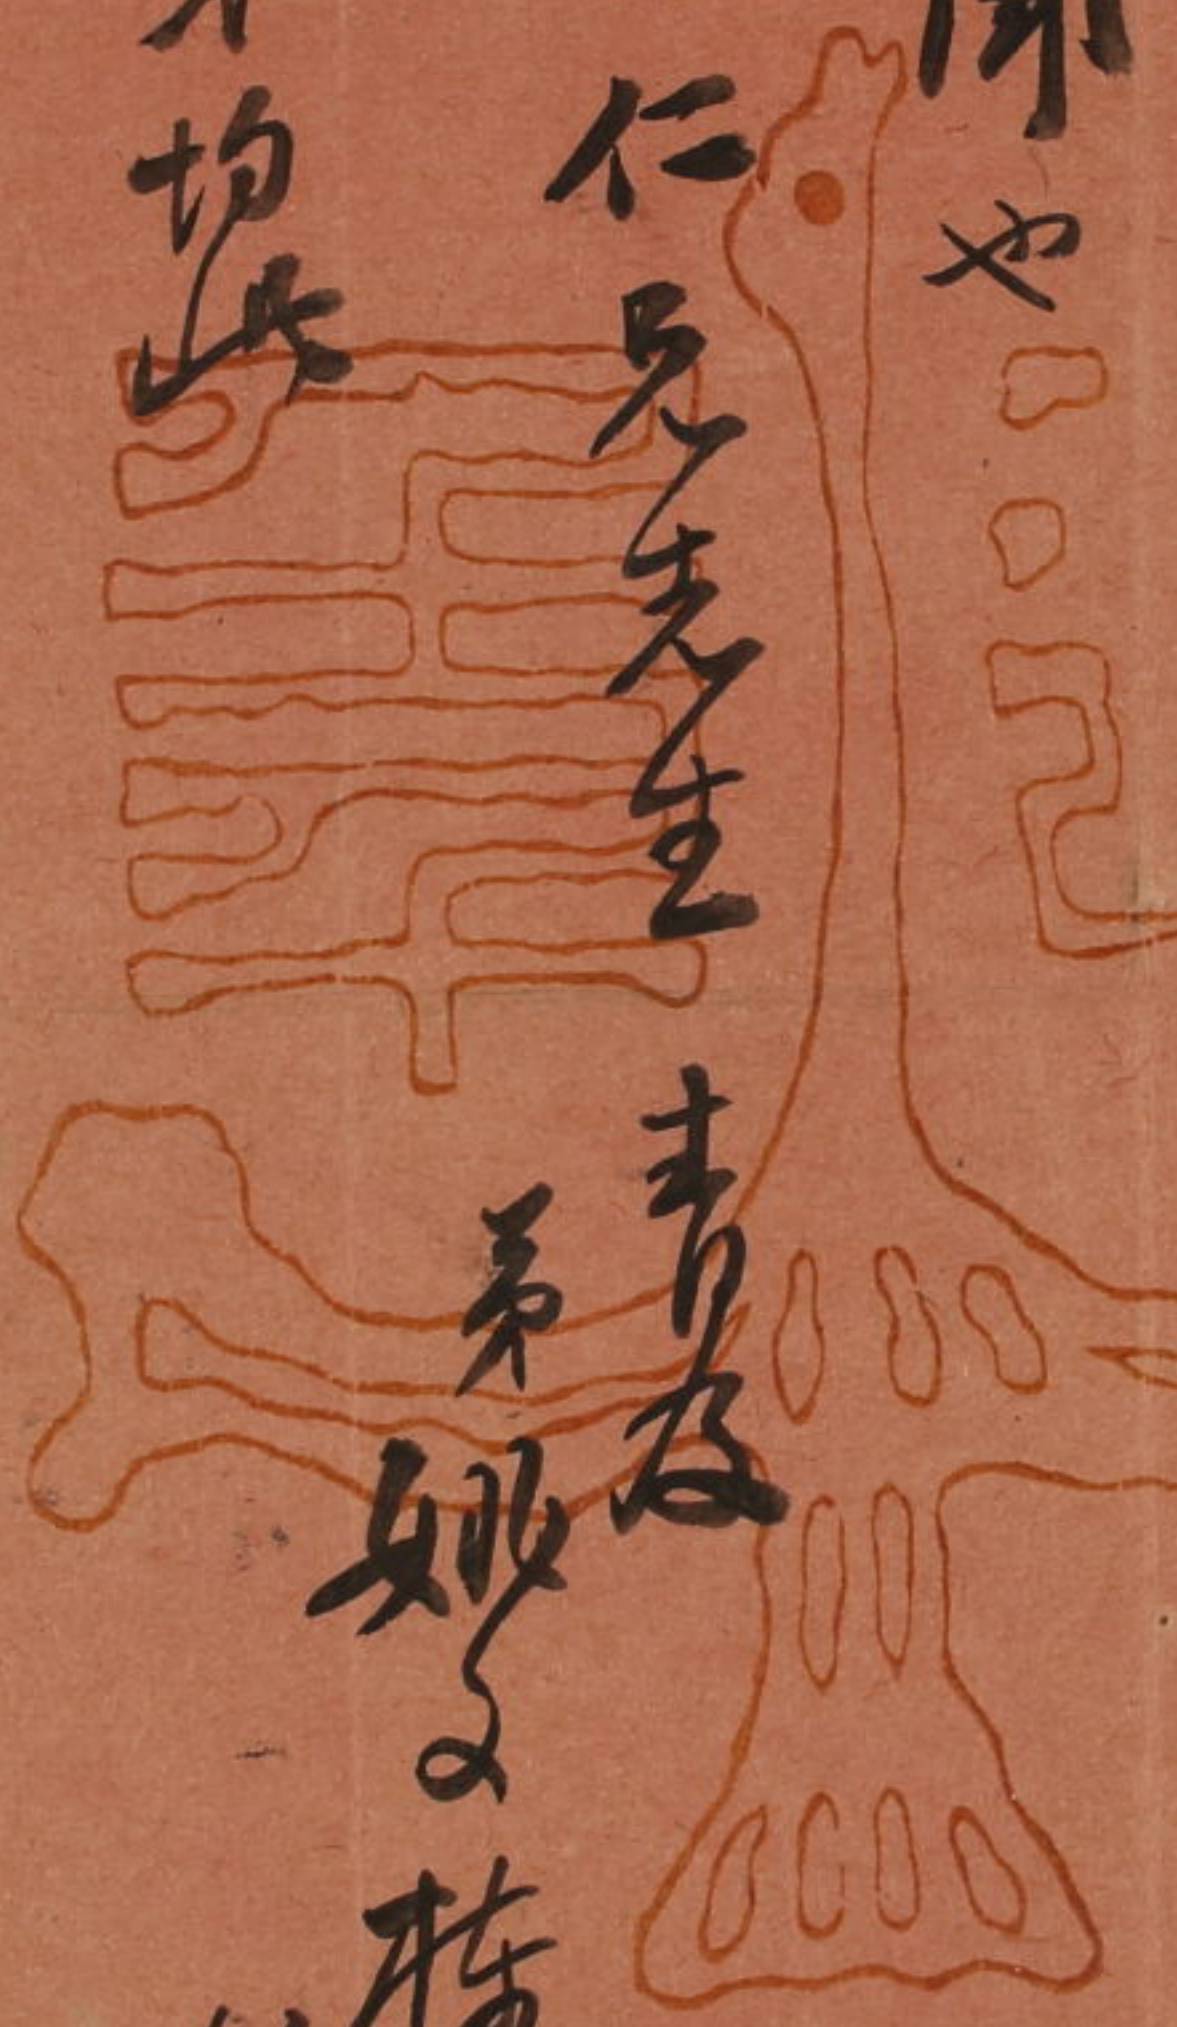 聞也
仁兄先生 青及
弟姚文棟
均此